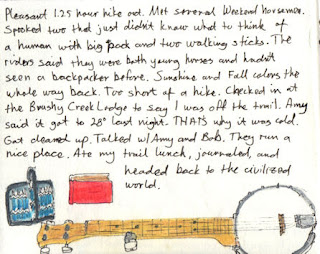 Pleasant 1.25 hour hike out. Met several Weekend horsemen.
Spooked two that just didn't know what to think of
a human with big pack and two walking sticks. The
riders said they were both young horses and hadn't
seen a backpacker before. Sunshine and Fall colors the
whole way back. Too short of a hike. Checked in at
the Brushy Creek Lodge to say I was off the trail. Amy
said it got to 28° last night. THATs why it was cold.
Got cleaned up. Talked w/Amy and Bob. They run a
nice place. Ate my trail lunch, journaled, and
headed back to the civilized
world.